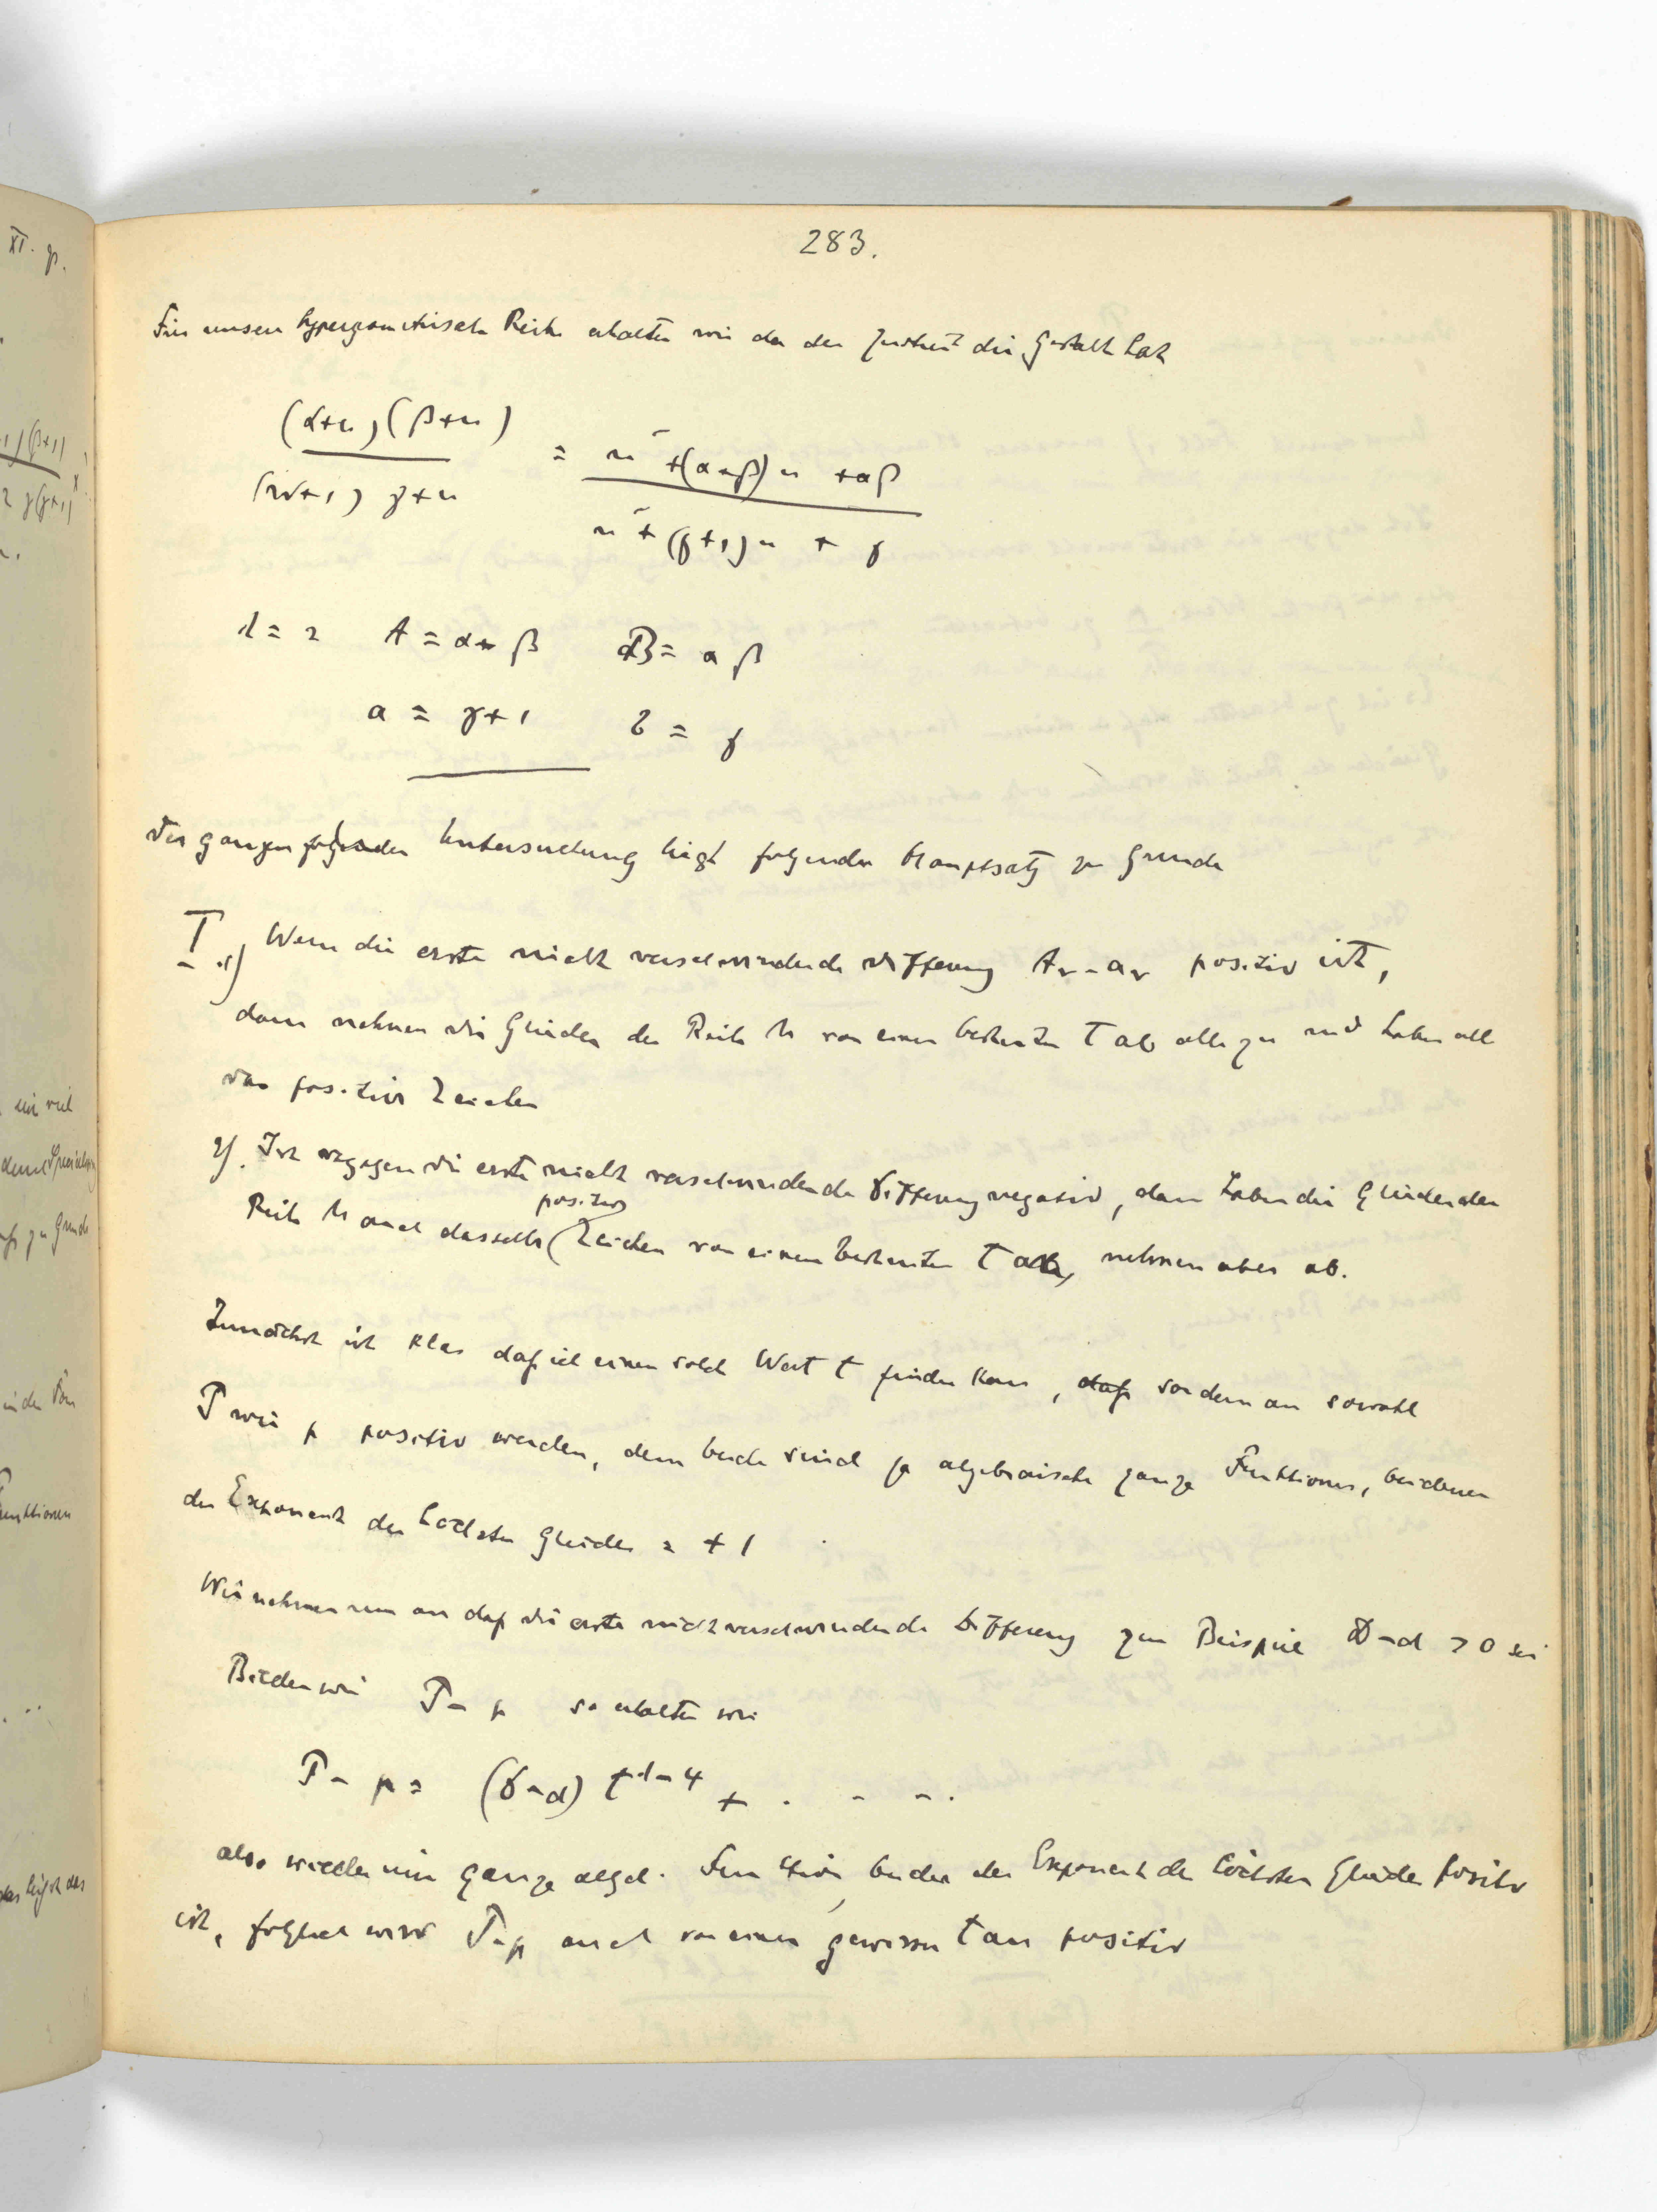 283.
Für unsere hypergeometrische Reihe erhalten wir da der Quotient die Gestalt hat
(α+n)(β+n) / (n+1) γ+n = n² + (α+β)n + αβ / n² + (γ+1)n + γ
λ = 2 A = α+β B = αβ
a = γ+1 b = γ
Der ganzen folgenden Untersuchung liegt folgender Hauptsatz zu Grunde
I. 1) Wenn die erste nicht verschwindende Differenz Aν - aν positiv ist,
dann nehmen die Glieder der Reihe M von einem bestimten t ab alle zu und haben alle
das positive Zeichen
2). Ist dagegen die erste nicht verschwindende Differenz negativ, dann haben die Glieder der
Reihe M auch dasselbe positive Zeichen von einem bestimten t ab, nehmen aber ab.
Zunächst ist klar daß ich einen solch Wert t finden kann, daß von dem an sowohl
P wie p positiv werden, denn beide sind ja algebraische ganze Funktionen, bei denen
der Exponent des höchsten Gliedes = + 1
Wir nehmen nun an daß die erste nicht verschwindende Differenz zum Beispiel D-d > 0 sei
Bilden wir P - p so erhalten wir
P - p = (D-d) t^λ-4 + . - - .
also wieder eine ganze algeb. Funktion, bei der der Exponent des höchsten Gliedes positiv
ist, folglich wird P-p auch von einem gewissen t an positiv
XI. gr.
ein viel
zu Grunde
in der
Funktionen